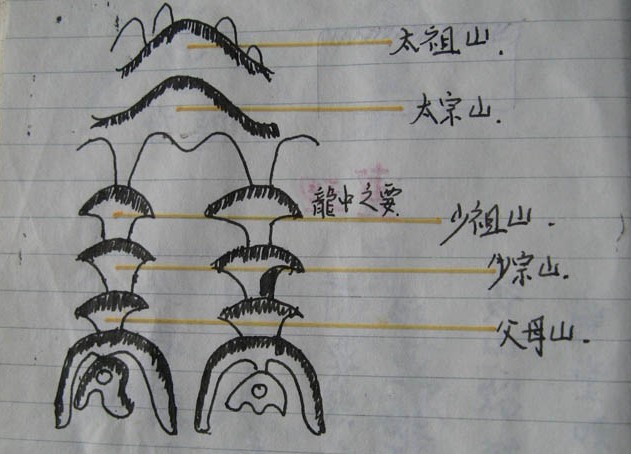 太祖山.
太宗山.
龍中之要
少祖山.
少宗山.
父母山.